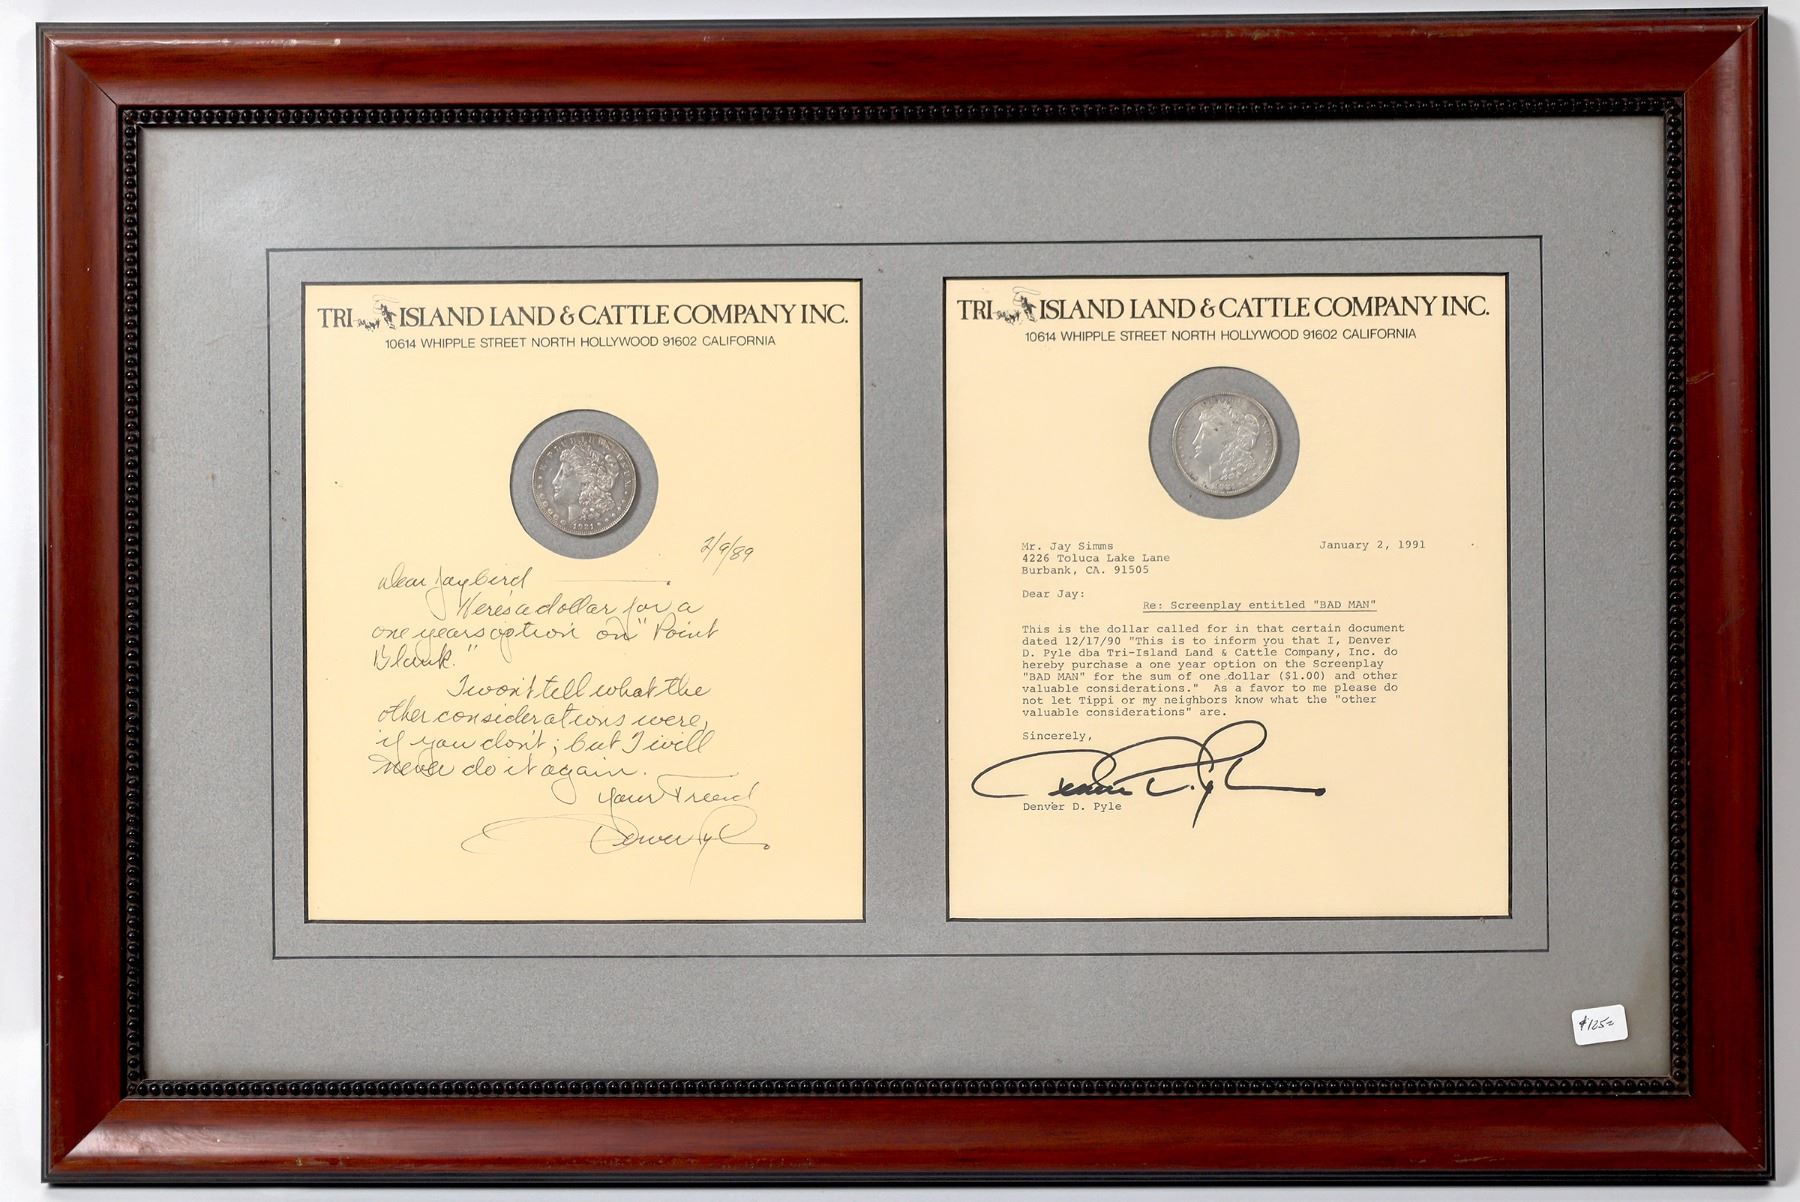 TRI-ISLAND LAND & CATTLE COMPANY INC.
10614 WHIPPLE STREET NORTH HOLLYWOOD 91602 CALIFORNIA
1921
2/9/89
Dear Jaybird
Here's a dollar for a
one years option on "Point
Blank."
I won't tell what the
other considerations were,
if you don't; but I will
never do it again.
Your Friend
Denver Pyle
TRI-ISLAND LAND & CATTLE COMPANY INC.
10614 WHIPPLE STREET NORTH HOLLYWOOD 91602 CALIFORNIA
1921
Mr. Jay Simms January 2, 1991
4226 Toluca Lake Lane
Burbank, CA. 91505
Dear Jay:
Re: Screenplay entitled "BAD MAN"
This is the dollar called for in that certain document
dated 12/17/90 "This is to inform you that I, Denver
D. Pyle dba Tri-Island Land & Cattle Company, Inc. do
hereby purchase a one year option on the Screenplay
"BAD MAN" for the sum of one dollar ($1.00) and other
valuable considerations." As a favor to me please do
not let Tippi or my neighbors know what the "other
valuable considerations" are.
Sincerely,
Denver D. Pyle
Denver D. Pyle
$125=